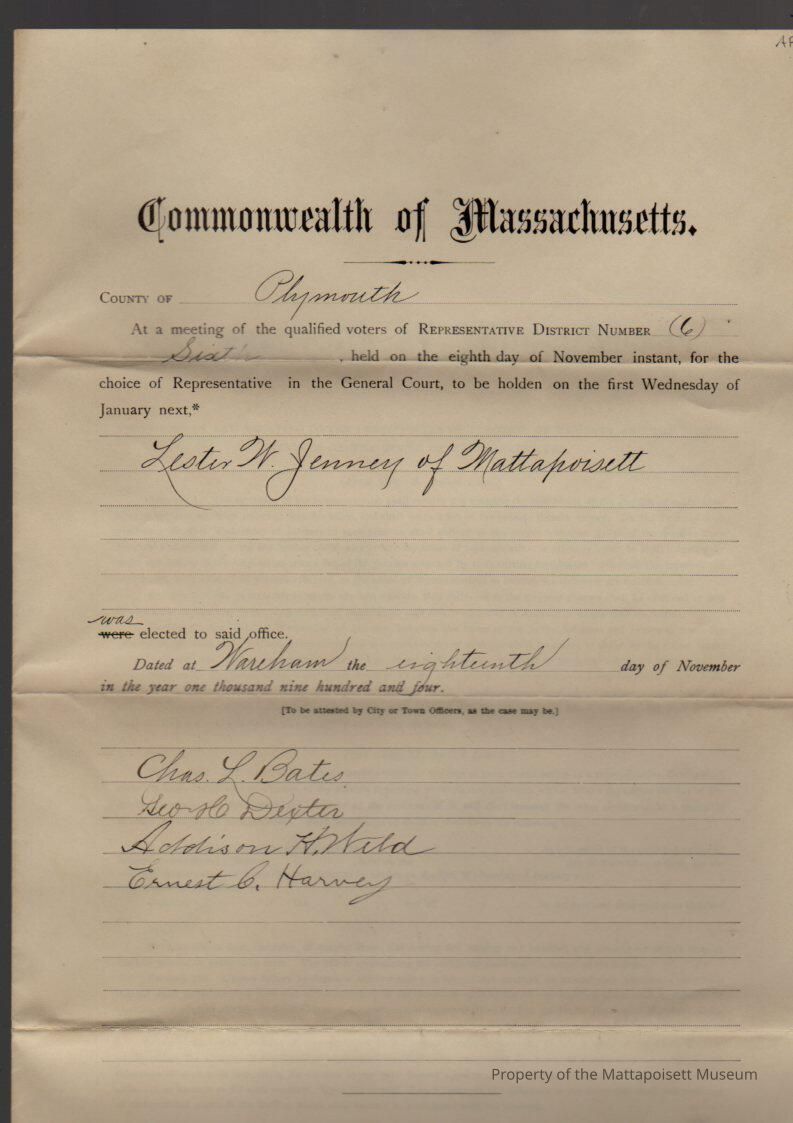 Commonwealth of Massachusetts.
COUNTY OF Plymouth
At a meeting of the qualified voters of REPRESENTATIVE DISTRICT NUMBER (6)
Sixth, held on the eighth day of November instant, for the
choice of Representative in the General Court, to be holden on the first Wednesday of
January next,*
Lester W. Jenney of Mattapoisett
was
were elected to said office.
Dated at Wareham the eighteenth day of November
in the year one thousand nine hundred and four.
[To be attested by City or Town Officers, as the case may be.]
Chas. L. Bates
Geo H Dexter
Addison H. Weld
Ernest C. Harvey
Property of the Mattapoisett Museum